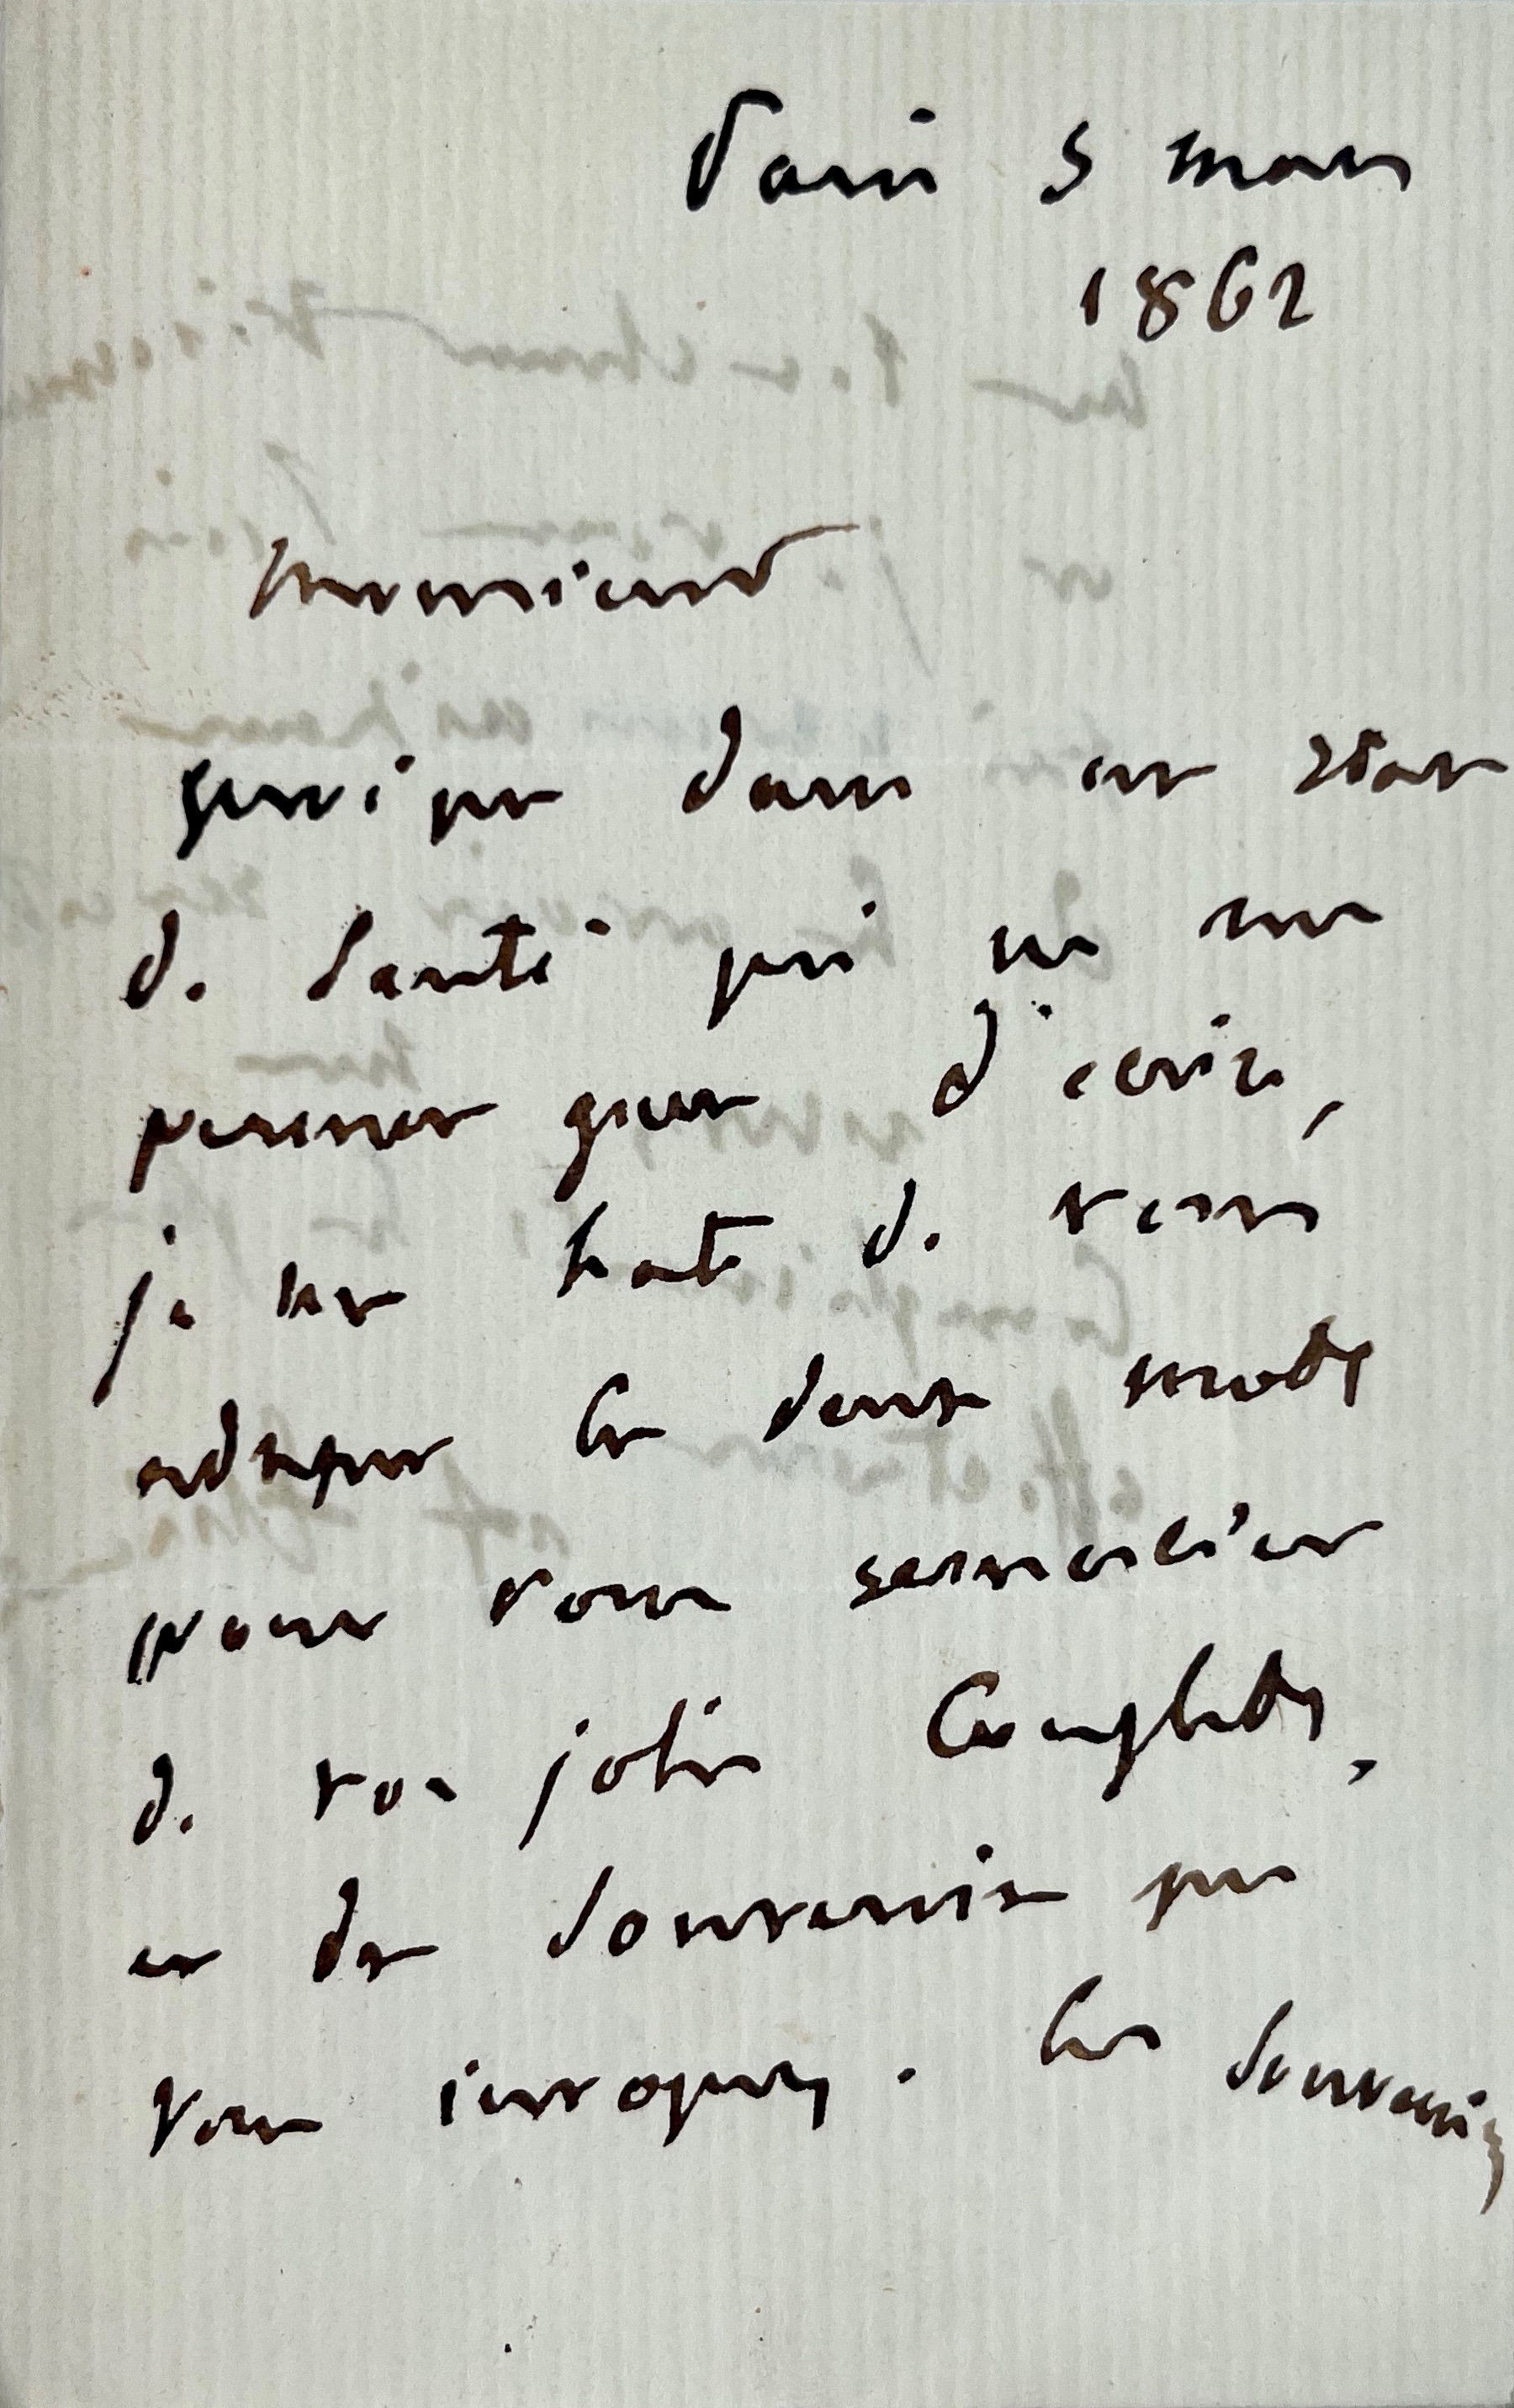 Paris 5 mars
1862
Monsieur
quoique dans un état
de santé qui ne me
permet guere d'écrire,
je me hate de vous
adresser ces deux mots
pour vous remercier
de vos jolis Couplets,
et des souvenirs que
vous invoquez. Ces souvenirs